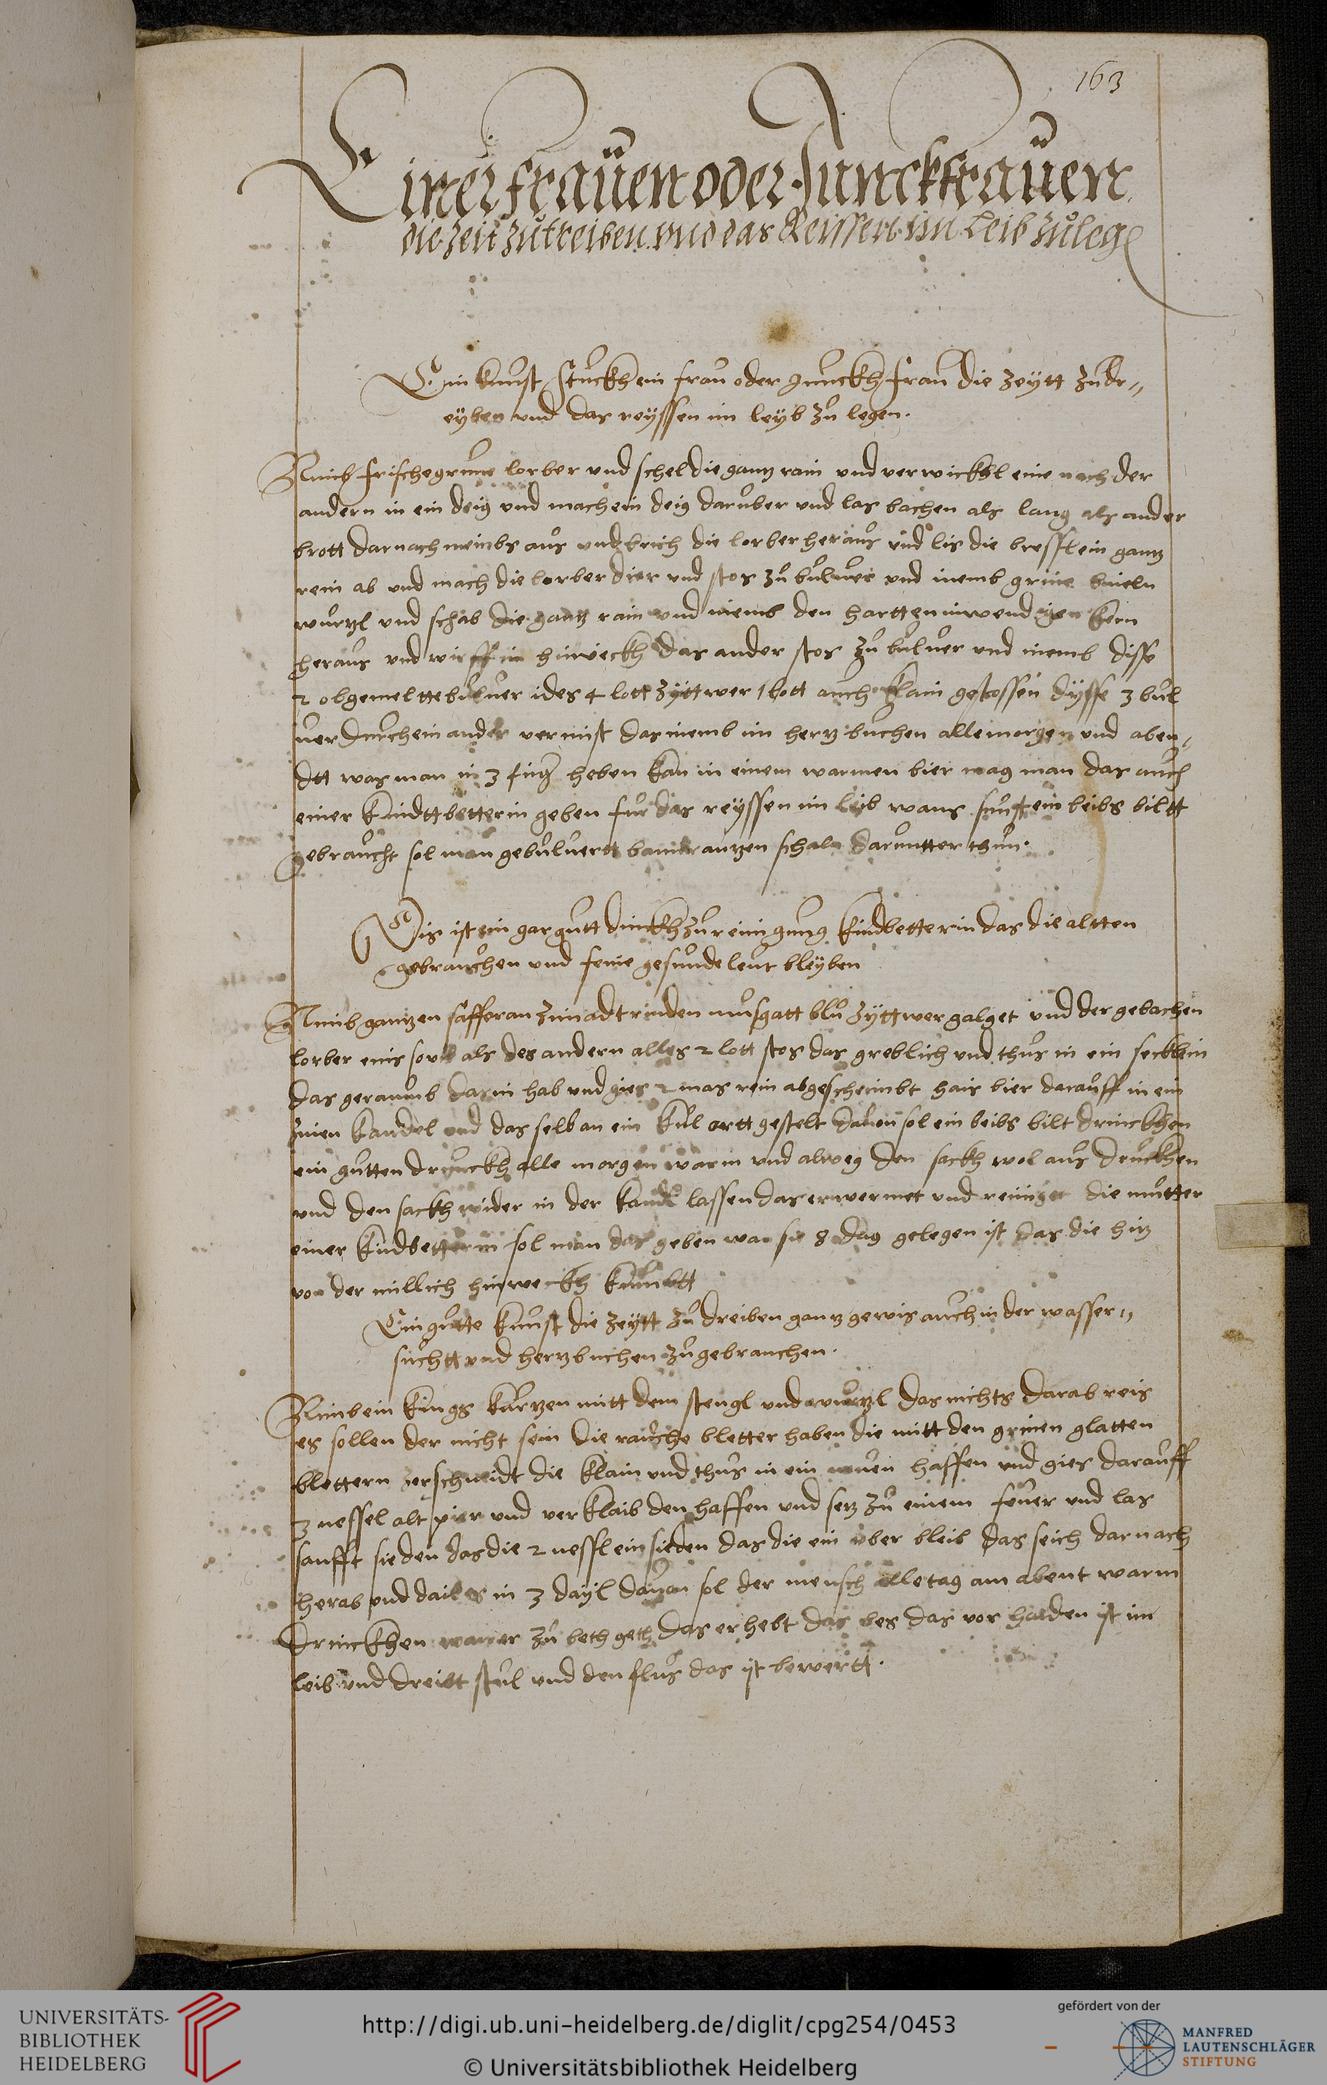 163
Einer frauen oder Junckfrauen
die zeit zutreiben und das Reissen im Leib zuleg
Ein kunst stuckh ein frau oder Junckh frau die zeytt zu dr„
eyben und das reyssen im leyb zu legen.
Nimb frische grune lorber und schel die gantz rain und verwickhl eine nach der
andern in ein deig und mach ein deig daruber und las bachen als lang als ander
brott darnach nembs aus und brich die lorber heraus und lis die ein gantz
rein ab und mach die lorber dier und stos zu bulver und nemb grine
wurtzl und schab die gantz rain und niemb den hartten inwendigen kern
heraus und wirff in hinweckh das ander stos zu bulver und niemb disse
2 obgemeltte bulver ides 4 lott zyttwer 1 lott auch klain gestossen dysse 3 bul
ver durch ein ander vermist das niemb im hertz buchen alle morgen und aben„
dtt was man in 3 fing heben kan in einem warmen bier mag man das auch
einer kindttbetterin geben fur das reyssen im leib wans sunst ein beibs biltt
gebraucht sol man gebulvertt schaln daruntter thun.
Dis ist ein gar gutt dinckh zur reinigung kindbetterin das die altten
gebrauchen und feine gesunde leut bleyben
Nimb gantzen safferan zimadt rinden musgatt blu zyttwer galget und der gebachen
lorber eins sovil als des andern alles 2 lott stos das greblich und thus in ein secklein
das geraumb darin hab und gies 2 mas rein abgescheimbt hais bier darauff in ein
zinen kandel und das selb an ein kul ortt gestelt davon sol ein beibs bilt drinckhen
ein gutten drunckh alle morgen warm und alweg den sackh wol aus druckhen
und den sackh wider in der kandl lassen das erwermet und reiniget die mutter
einer kindbetterin sol man das geben wan sie 8 dag gelegen ist das die hitz
von der millich hinweckh kumbtt
Ein gutte kunst die zeytt zu dreiben gantz gewis auch in der wasser„
suchtt und hertzbuchen zu gebrauchen.
Nimb ein kings kurtzen mitt dem stengl und wurtzl das nichts darab reis
es sollen der nicht sein die rauche bletter haben die mitt den grinen glatten
blettern zerschneidt die klain und thus in ein neuen haffen und gies darauff
3 nessel alt pier und verklaib den haffen und setz zu einem feuer und las
sanfft sieden das die 2 nessl ein sieden das die ein uber bleib das seich darnach
herab und dails in 3 dayl davon sol der mensch alle tag am abent warm
drinckhen waner zu beth geth das erhebt das bes das vor handen ist im
leib und dreibt stul und den flus das ist bewertt.
UNIVERSITÄTS-
BIBLIOTHEK
HEIDELBERG
http://digi.ub.uni-heidelberg.de/diglit/cpg254/0453
© Universitätsbibliothek Heidelberg
gefördert von der
MANFRED
LAUTENSCHLÄGER
STIFTUNG